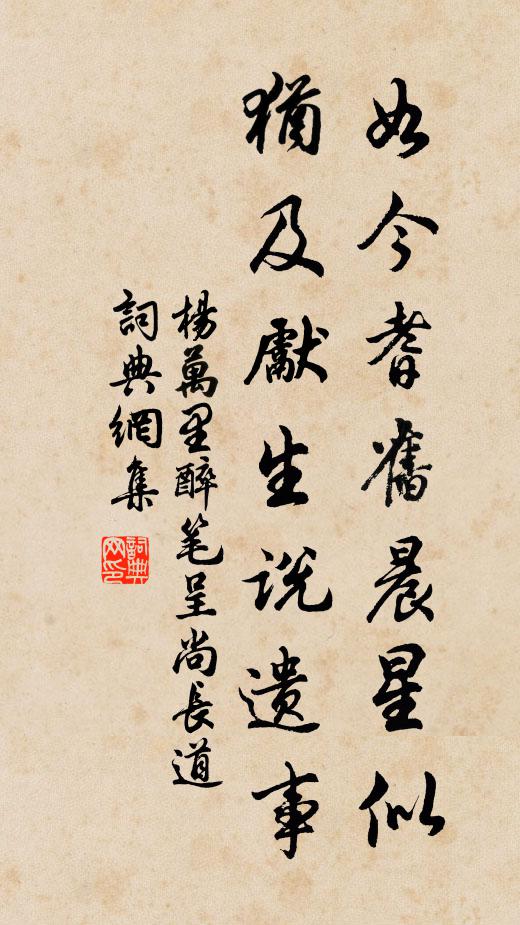 如今耆舊晨星似
猶及獻生説遺事
楊萬里醉笔呈尚長道
詞典網集
詞典
网印